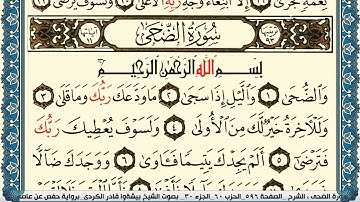 نِّعْمَةٍ تُجْزَىٰٓ ١٩ إِلَّا ٱبْتِغَآءَ وَجْهِ رَبِّهِ ٱلْأَعْلَىٰ ٢٠ وَلَسَوْفَ يَرْضَىٰ ٢١
سُورَةُ الضُّحَىٰ
بِسْمِ ٱللَّهِ ٱلرَّحْمَٰنِ ٱلرَّحِيمِ
وَٱلضُّحَىٰ ١ وَٱلَّيْلِ إِذَا سَجَىٰ ٢ مَا وَدَّعَكَ رَبُّكَ وَمَا قَلَىٰ ٣
وَلَلْءَاخِرَةُ خَيْرٌ لَّكَ مِنَ ٱلْأُولَىٰ ٤ وَلَسَوْفَ يُعْطِيكَ رَبُّكَ
فَتَرْضَىٰٓ ٥ أَلَمْ يَجِدْكَ يَتِيمًا فَـَٔاوَىٰ ٦ وَوَجَدَكَ ضَآلًّا
رة الضحى ، الشرح . الصفحة ٥٩٦ . الحزب ٦٠ . الجزء ٣٠ . بصوت الشيخ بيشةوا قادر الكردي . برواية حفص عن عاصم